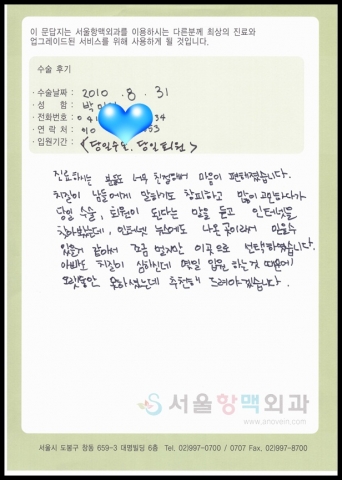 이 문답지는 서울항맥외과를 이용하시는 다른분께 최상의 진료와
업그레이드된 서비스를 위해 사용하게 될 것입니다.
수술 후기
· 수술날짜 : 2010 . 8 . 31
· 성 함 : 박
· 전화번호 : 041 34
· 연 락 처 : 010 53
· 입원기간 : < 당일수술, 당일퇴원 >
진료하시는 분들도 너무 친절해서 마음이 편해졌습니다.
치질이 남들에게 말하기도 창피하고 많이 고민하다가
당일 수술, 퇴원이 된다는 말을 듣고 인터넷을
찾아봤는데, 인터넷 뉴스에도 나온 곳이라서 믿을수
있을거 같아서 조금 멀지만 이곳으로 선택하였습니다.
아빠도 치질이 심하신데 몇일 입원 하는것 때문에
오랫동안 못하셨는데 추천해 드려야겠습니다.
서울항맥외과
www.anovein.com
서울시 도봉구 창동 659-3 대명빌딩 6층 Tel. 02)997-0700 / 0707 Fax. 02)997-8700